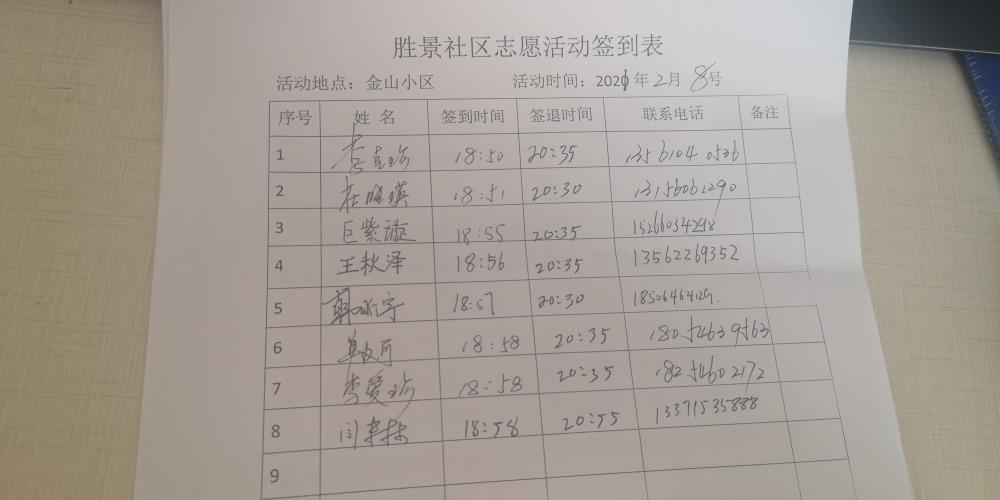 胜景社区志愿活动签到表
活动地点：金山小区 活动时间：2021年2月8号
序号 姓名 签到时间 签退时间 联系电话 备注
1 18:50 20:35 13561040536
2 18:51 20:30 13156061290
3 巨紫璇 18:55 20:35 15266034298
4 王秋泽 18:56 20:35 13562269352
5 18:57 20:30
6 18:58 20:35 18054639563
7 李爱珍 18:58 20:35 18254602172
8 18:58 20:55 13371535888
9